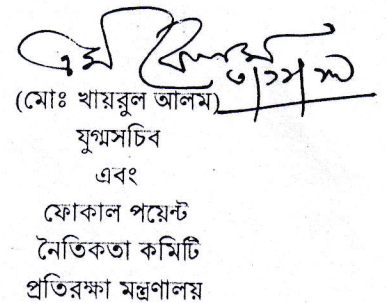 (মোঃ খায়রুল আলম)
যুগ্মসচিব
এবং
ফোকাল পয়েন্ট
নৈতিকতা কমিটি
প্রতিরক্ষা মন্ত্রণালয়